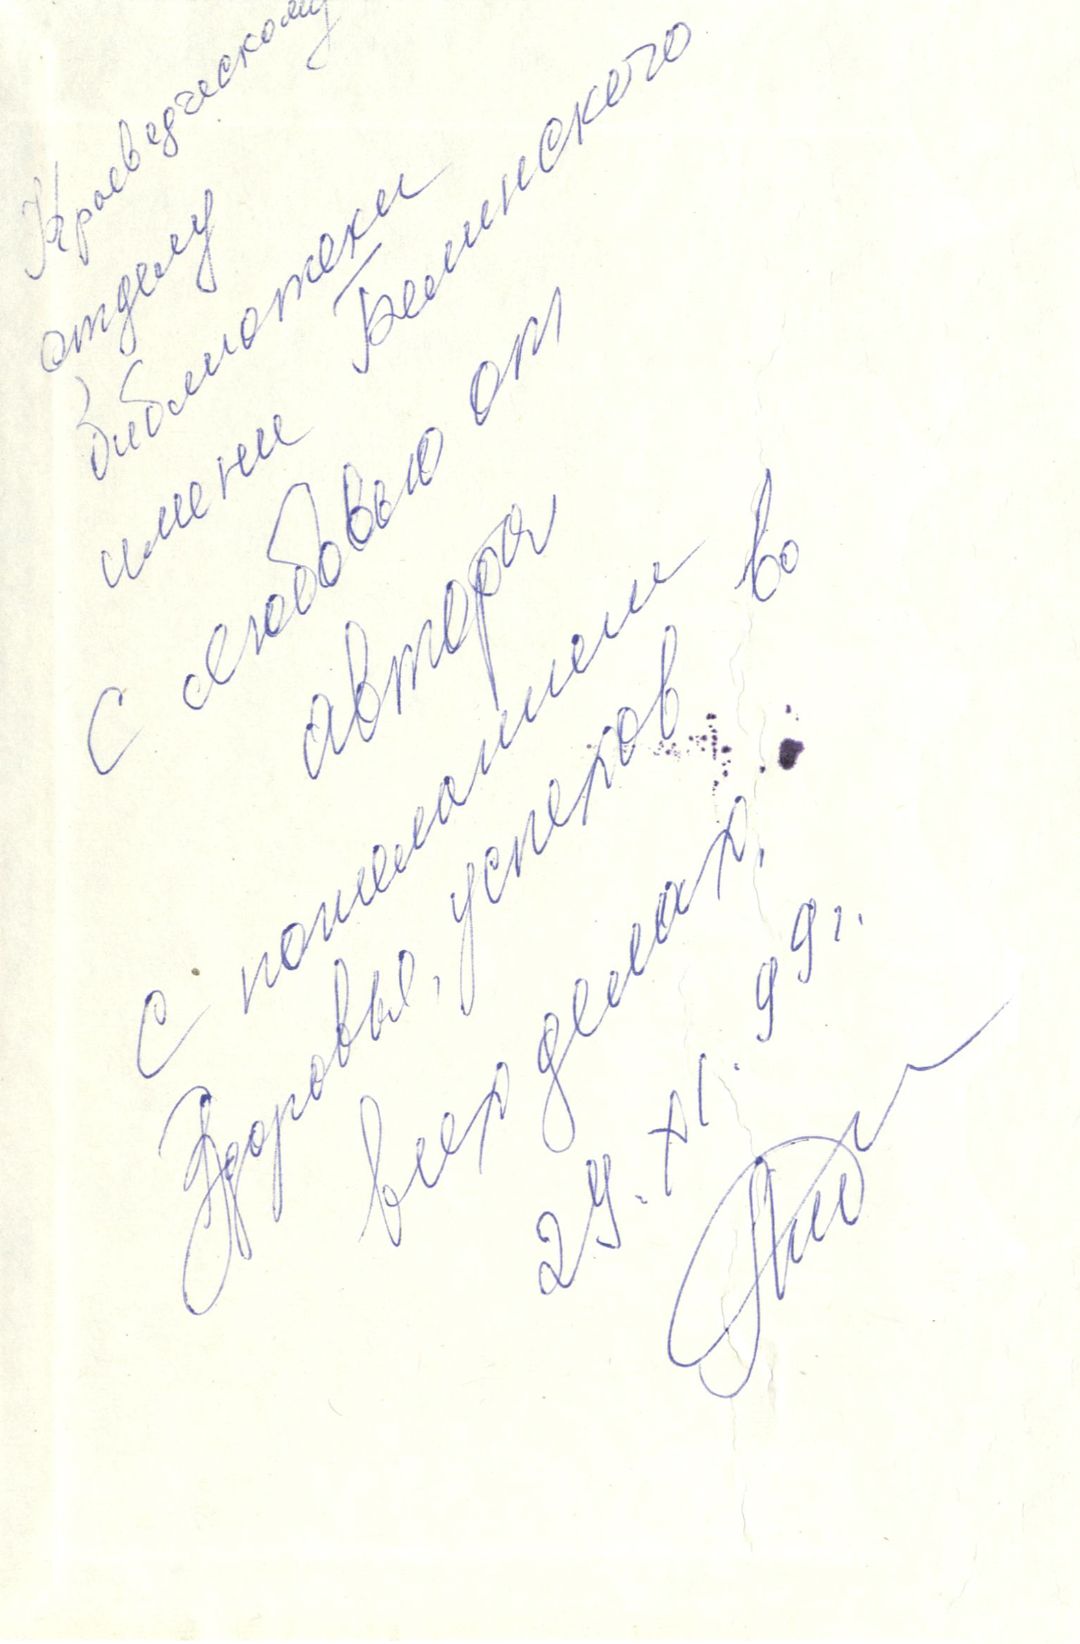 Краеведческому
отделу
библиотеки
имени Белинского
С любовью от
автора
С пожеланием
здоровья, успехов во
всех делах.
29. XI. 99 г.